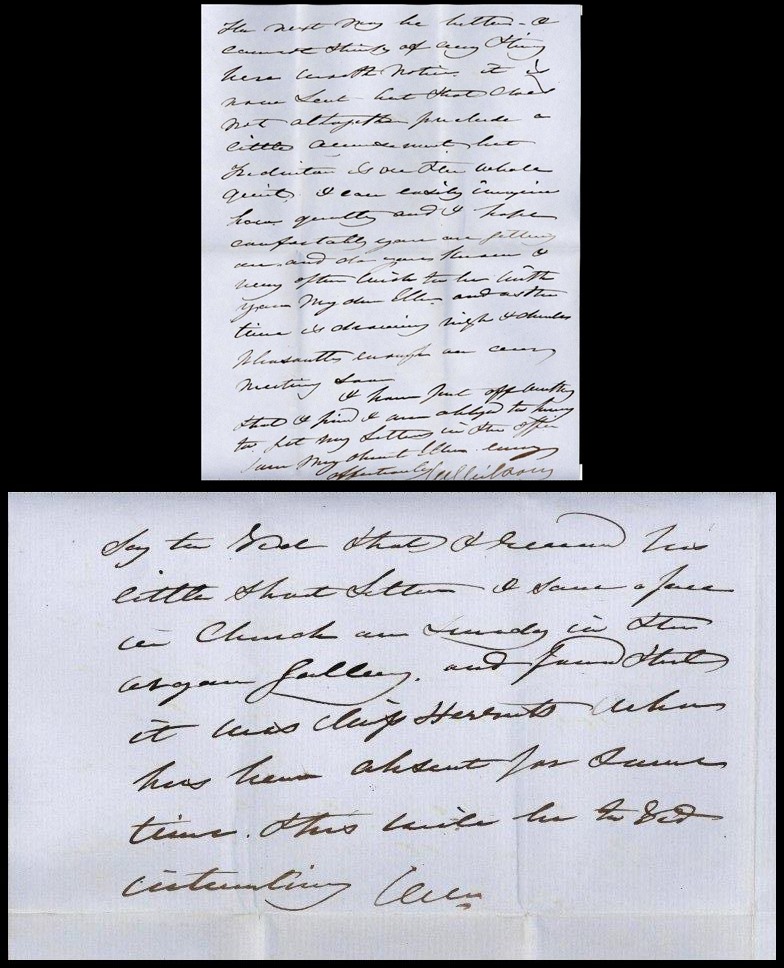 The next may be better - I
cannot think of any thing
here worth notice. it is
now Lent but that does
not altogether preclude a
little amusement but
is on the whole
quiet. I can easily imagine
how quietly and I hope
comfortably you are getting
on. and do you know I
very often wish to be with
you My dear Ellen and as the
time is drawing nigh I
pleasantly enough on our
meeting soon
I have put off writing
that I find I am obliged to hurry
to get my letters in the office
I am my dearest Ellen
affectionately
Say to Ned that I received his
little short letter I saw a face
in Church on Sunday in the
organ Gallery. and found that
it was Miss who
has been absent for some
time. this will be to Ned
interesting